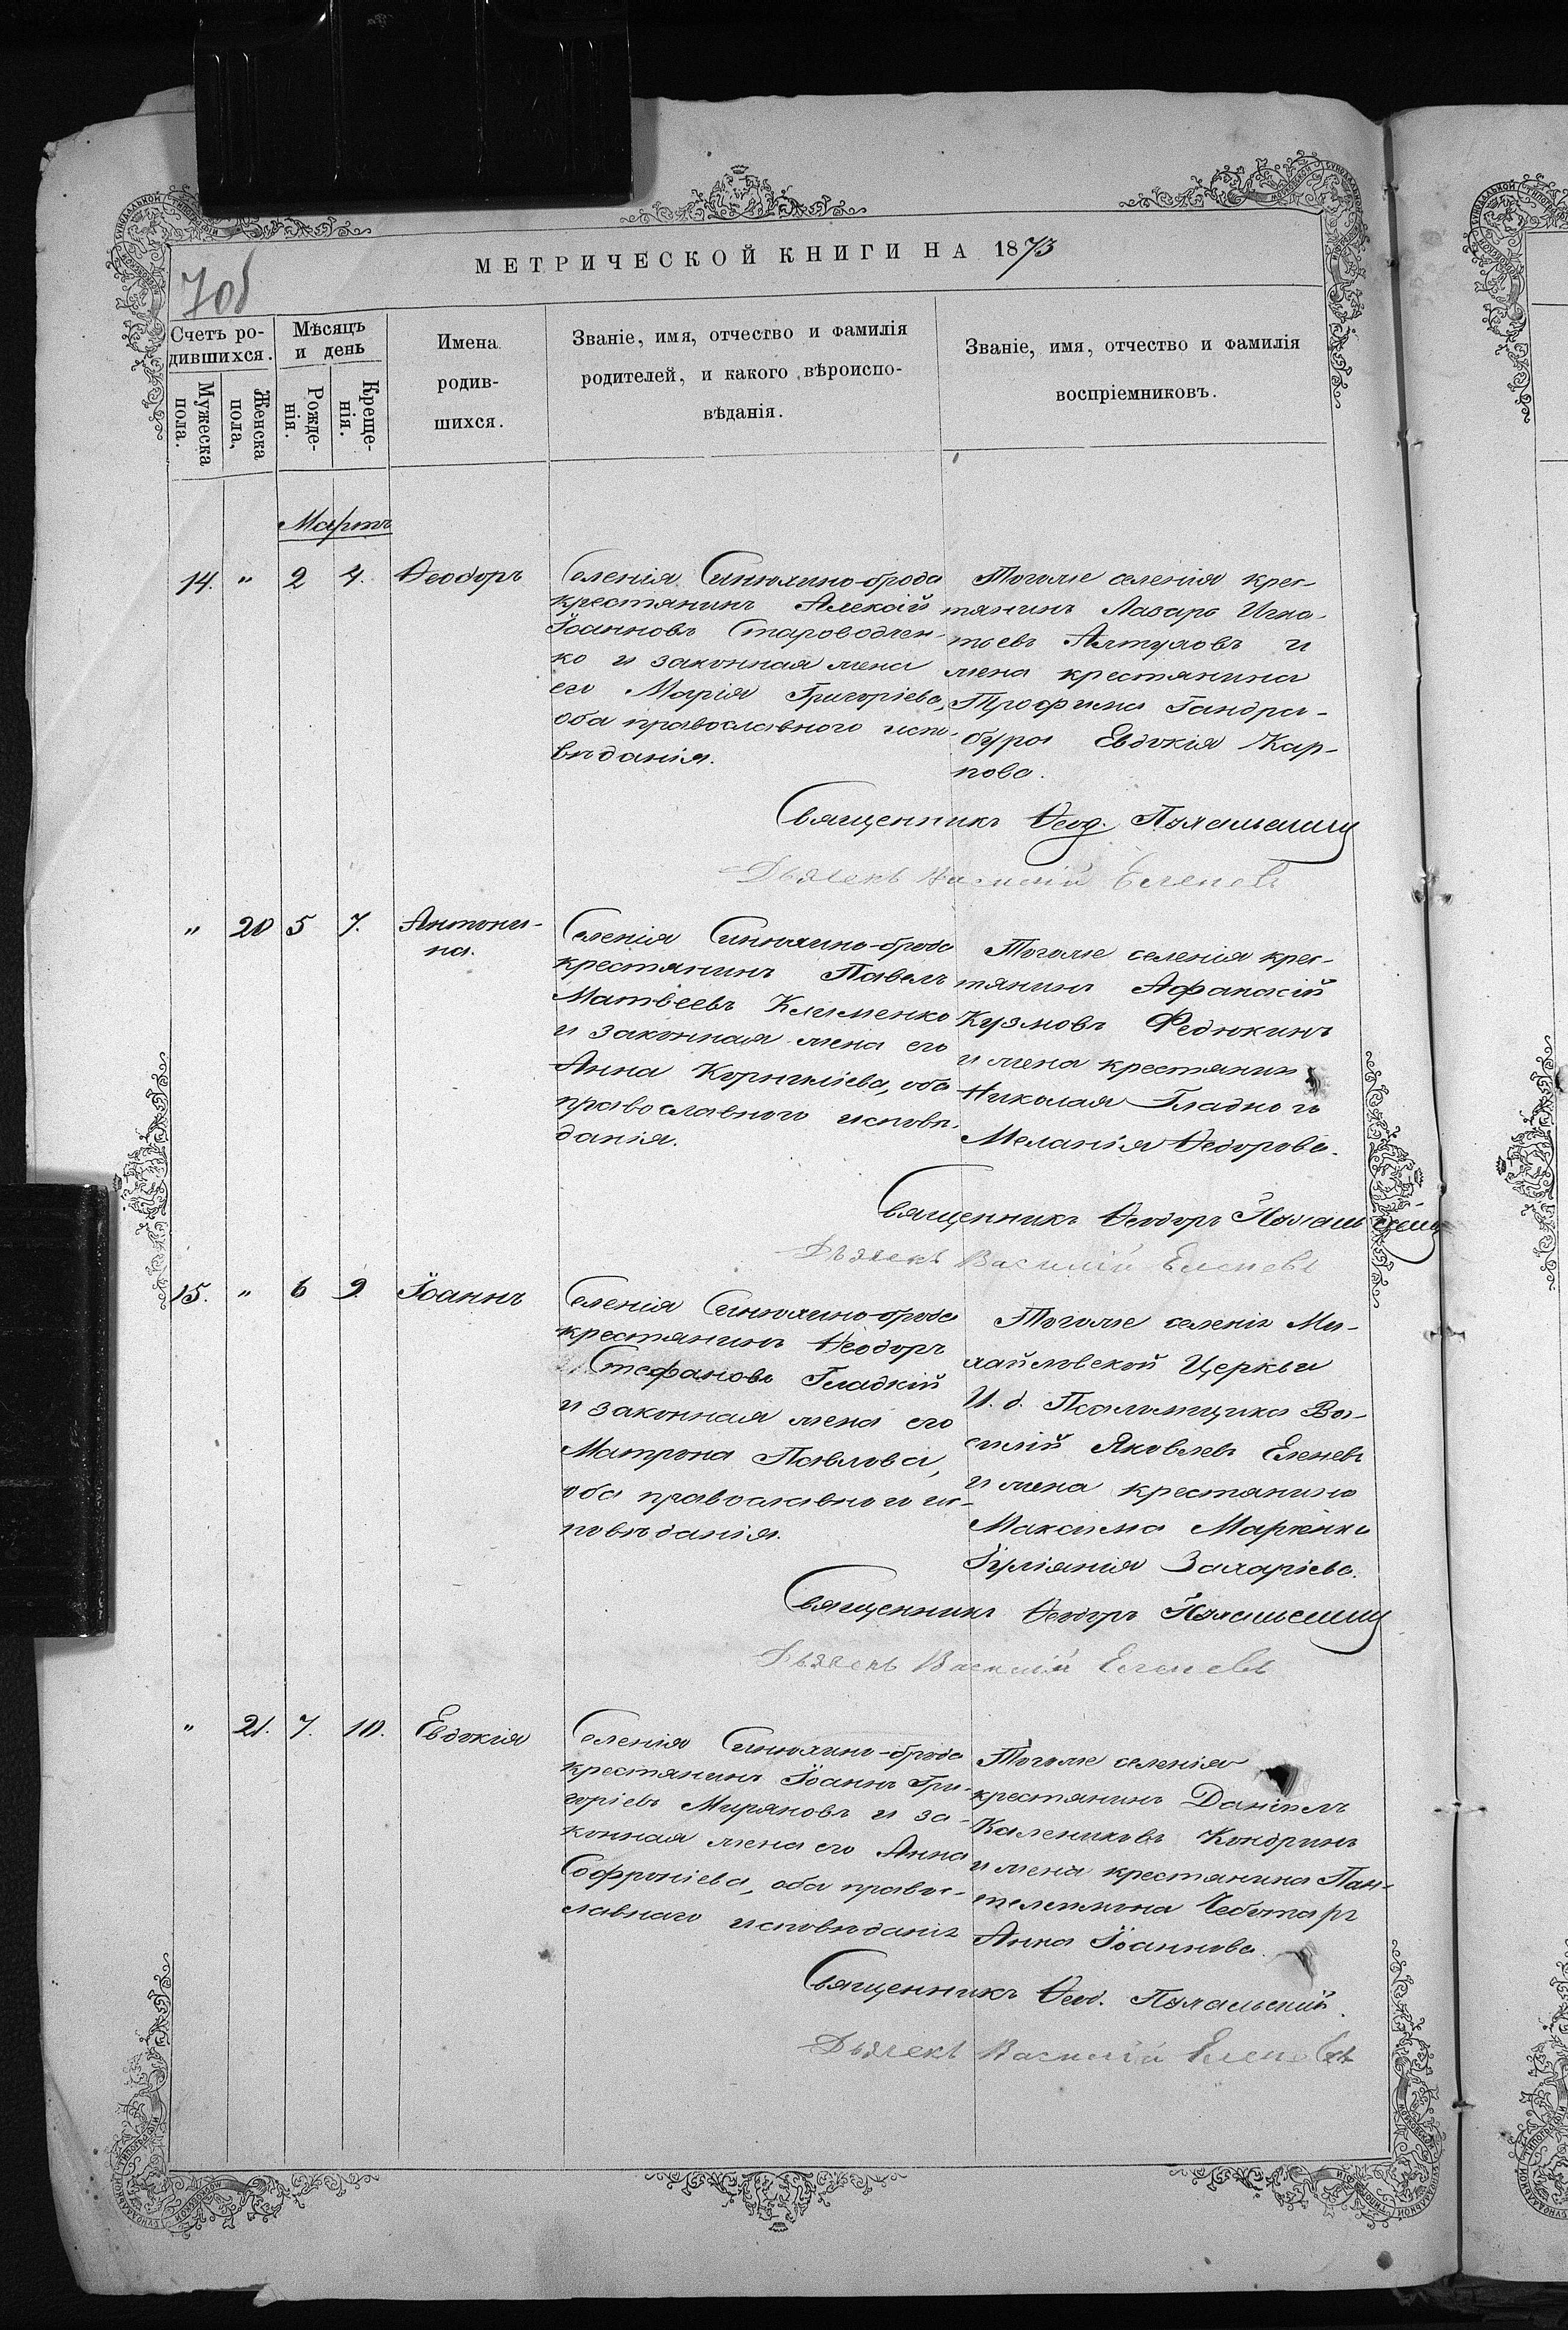 МЕТРИЧЕСКОЙ КНИГИ НА 1873
70б
Счетъ ро-
дившихся.
Мужеска
пола.
Женска
пола,
Мѣсяцъ
и день
Рожде-
нія.
Креще-
нія.
Имена
родив-
шихся.
Званіе, имя, отчество и фамилія
родителей, и какого вѣроиспо-
вѣданія.
Званіе, имя, отчество и фамилія
воспріемниковъ.
Мартъ
14. " 2 4. Ѳеодоръ
Селенія Синюхино-брода
крестянинъ Алексій
Іоанновъ Староводчен-
ко и законная жена
его Марія Григоріева,
оба православного испо-
вѣданія.
Тогоже селенія крес-
тянинъ Лазарь Игна-
тьевъ Алтуховъ и
жена крестянина
Трофима Гандра-
бура Евдокія Кар-
пова.
Священникъ Ѳеод.
Дьячекъ Василій Еленевъ
" 20 5 7. Антони-
на.
Селенія Синюхино-брода
крестянинъ Павелъ
Матвеевъ Клименко
и законная жена его
Анна Корниліева, оба
православного исповѣ-
данія.
Тогоже селенія крес-
тянинъ Афанасій
Кузмовъ Федюкинъ
и жена крестянина
Николая Гладкого
Меланія Ѳедорова.
Священникъ Ѳеодоръ
Дьячекъ Василій Еленевъ
15. " 6 9. Іоаннъ
Селенія Синюхино-брода
крестянинъ Ѳеодоръ
Стефановъ Гладкій
и законная жена его
Матрона Павлова,
оба православного ис-
повѣданія.
Тогоже селенія Ми-
хайловской Церкви
И. д. Псаломщика Ва-
силій Яковлевъ Еленевъ
и жена крестянина
Максима Марченка
Іуліанія Захаріева.
Священникъ Ѳеодоръ
Дьячекъ Василій Еленевъ
" 21. 7. 10. Евдокія
Селенія Синюхино-брода
крестянинъ Іоаннъ Гри-
горіевъ Миряновъ и за-
конная жена его Анна
Софроніева, оба право-
славнаго исповѣданія
Тогоже селенія
крестянинъ Даніилъ
Калениковъ Кондринъ
и жена крестянина Пан-
телеимона Чеботарь
Анна Іоаннова.
Священникъ Ѳеод.
Дьячекъ Василій Еленевъ